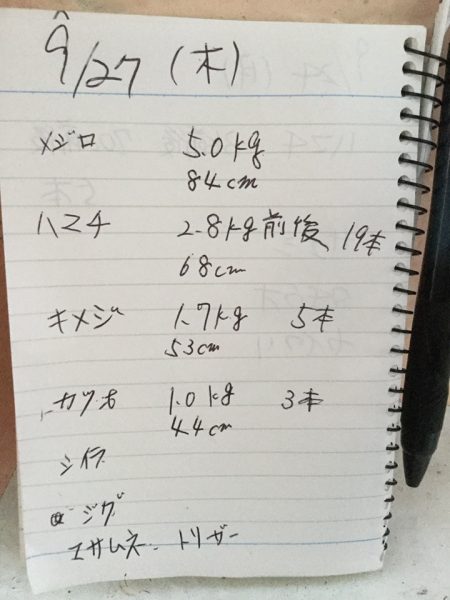 9/27 (木)
メジロ 5.0kg
84cm
ハマチ 2.8kg前後 19本
68cm
キメジ 1.7kg 5本
53cm
カツオ 1.0kg 3本
44cm
シイラ
ジグ
エサムネ トリガー